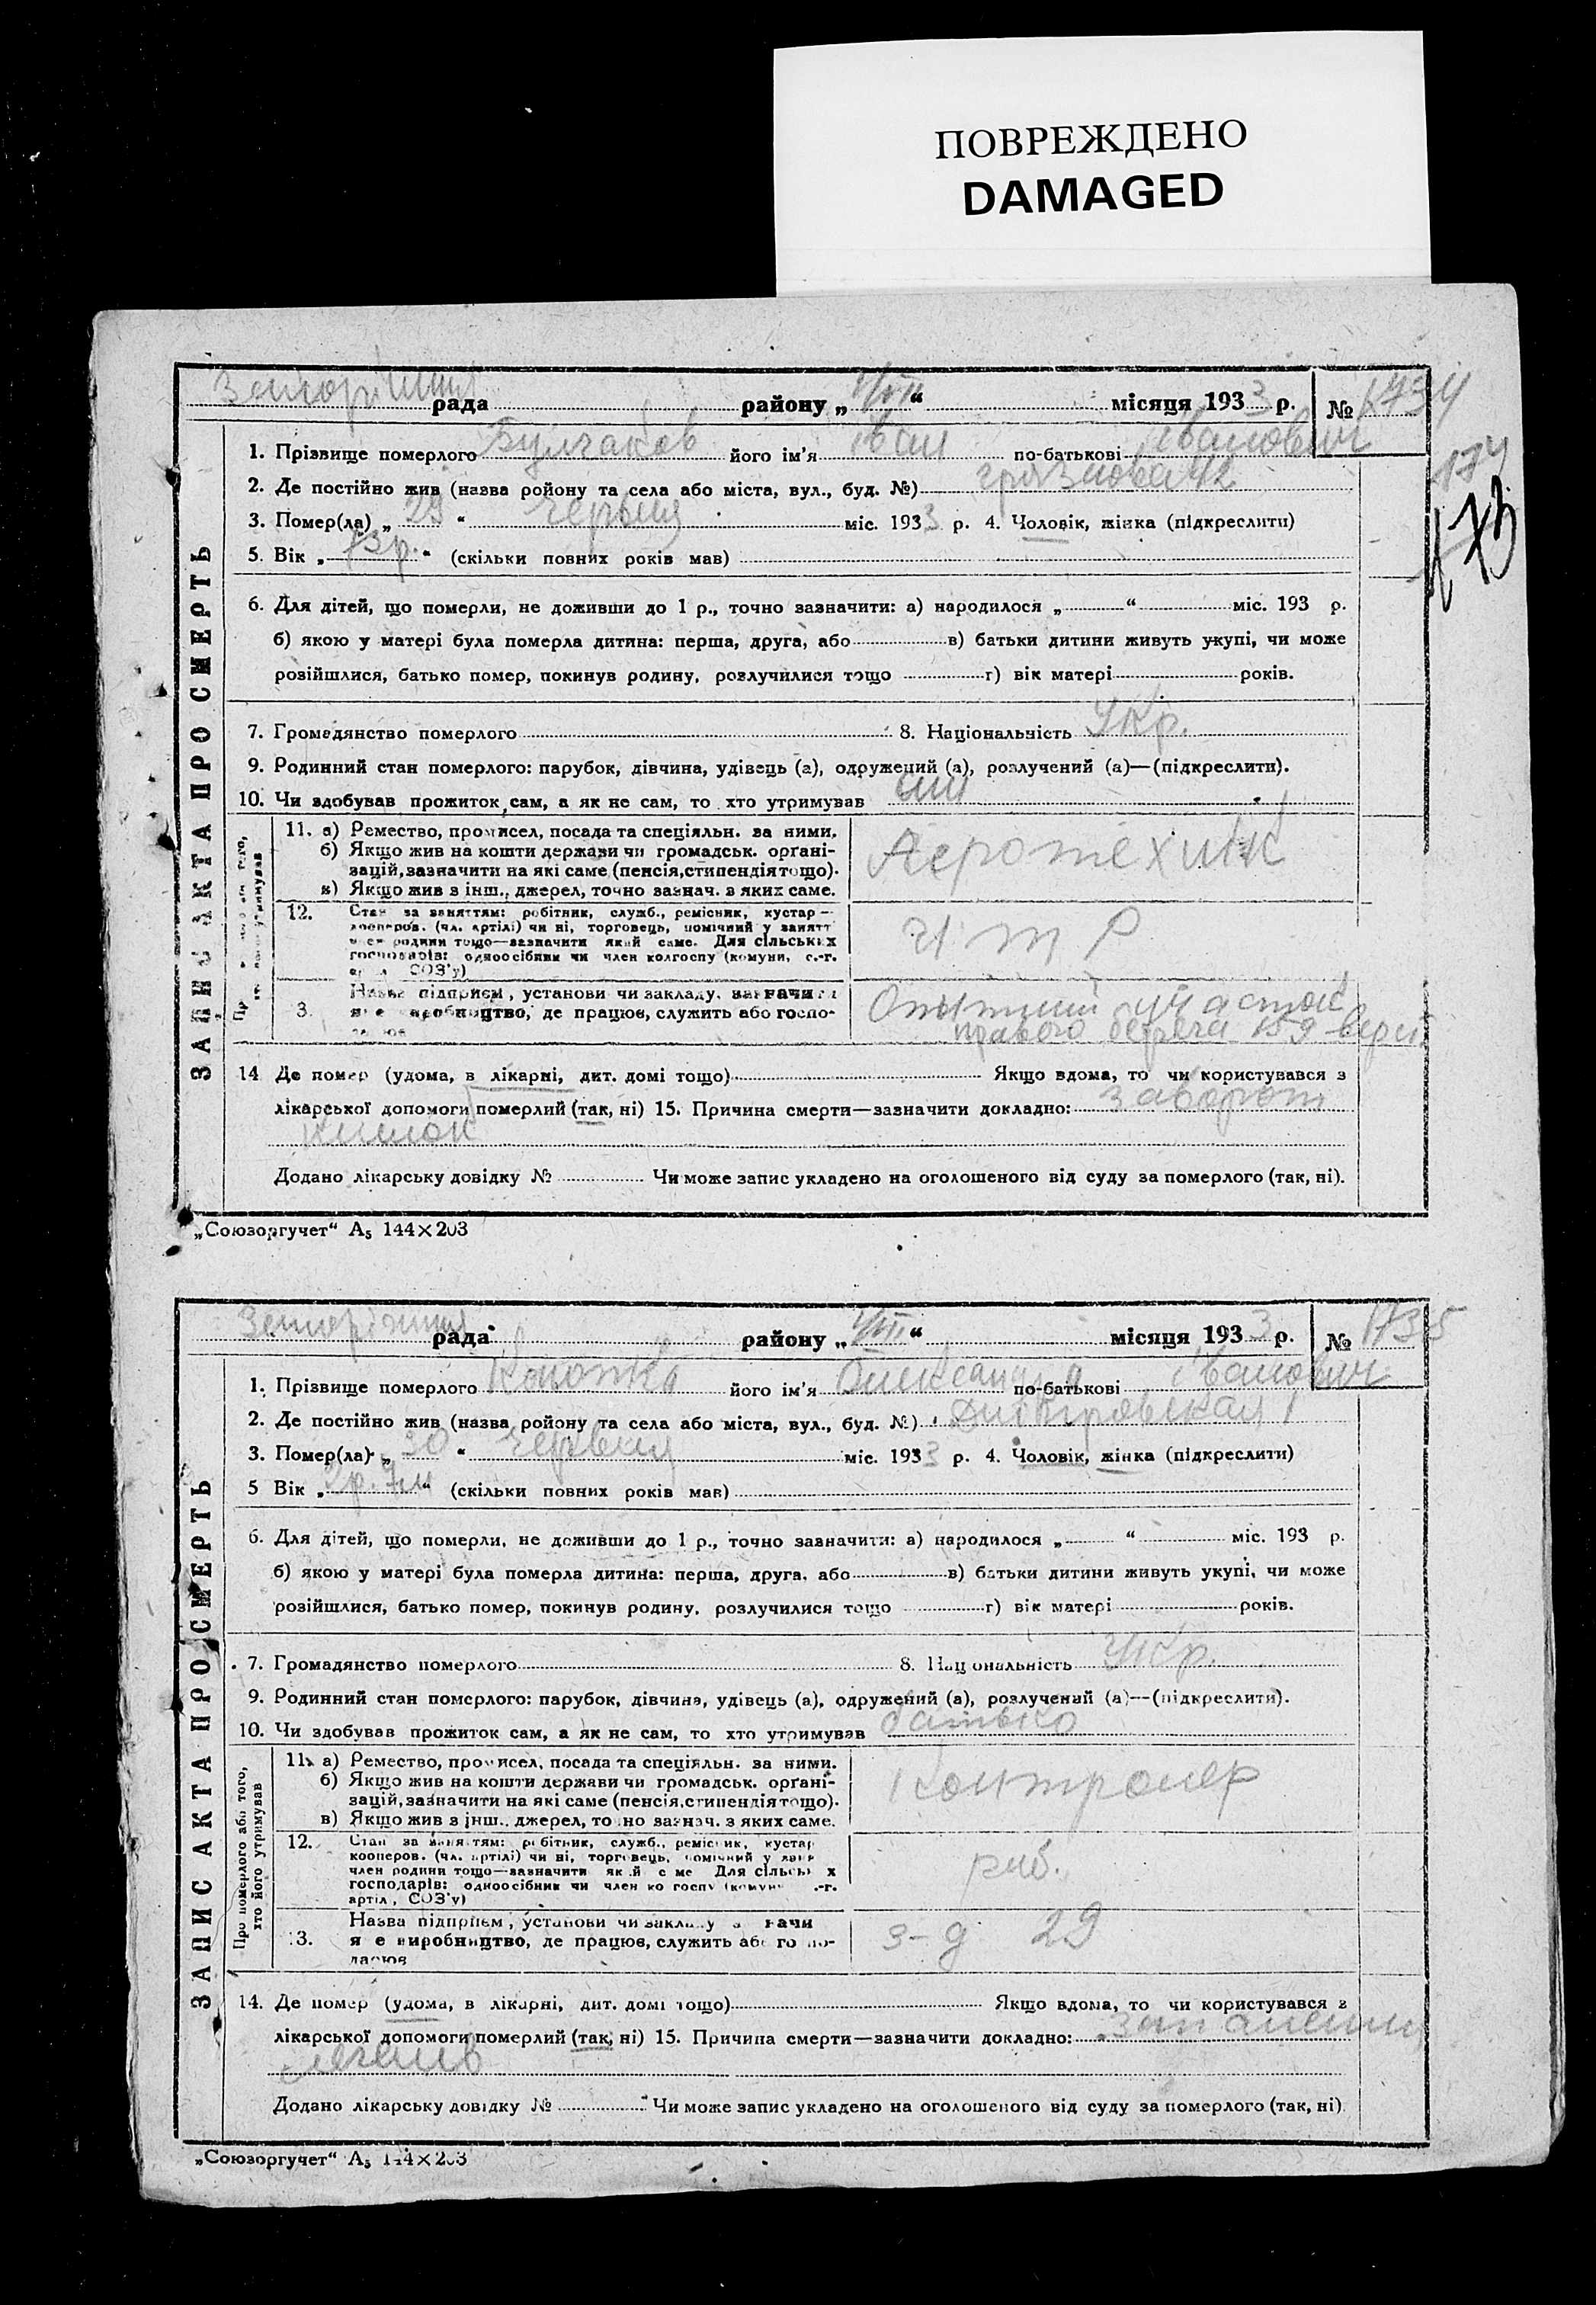 ПОВРЕЖДЕНО
DAMAGED
рада району „ 1/VII “ місяця 193 3 р. № 1734
1. Прізвище померлого Булгаков його ім'я Іван по-батькові Іванович
2. Де постійно жив (назва ройону та села або міста, вул., буд. №) Грязнова 42
3. Помер(ла) „ 29 “ Червня міс. 193 3 р. 4. Чоловік, жінка (підкреслити)
173
5. Вік „ “ (скільки повних років мав)
6. Для дітей, що померли, не доживши до 1 р., точно зазначити: а) народилося „ “ міс. 193 р.
б) якою у матері була померла дитина: перша, друга, або в) батьки дитини живуть укупі, чи може
розійшлися, батько помер, покинув родину, розлучилися тощо г) вік матері років.
7. Громадянство померлого 8. Національність Укр.
9. Родинний стан померлого: парубок, дівчина, удівець (а), одружений (а), розлучений (а)—(підкреслити).
10. Чи здобував прожиток сам, а як не сам, то хто утримував сам
11. а) Ремество, промисел, посада та спеціяльн. за ними.
б) Якщо жив на кошти держави чи громадськ. орґані-
зацій, зазначити на які саме (пенсія, стипендія тощо).
в) Якщо жив з інш., джерел, точно зазнач. з яких саме.
Аеротехнік
12. Стан за заняттям: робітник, служб., ремісник, кустар
кооперов. (чл. артілі) чи ні, торговець, помічний у занятт
член родини тощо—зазначити який саме. Для сільських
господарів: одноосібник чи член колгоспу (комуни, с.-г.
СОЗ'у)
И т Р
Назва підприєм., установи чи закладу, зазначити
3. виробництво, де працює, служить або госпо-
Опытный участок
правого берега
14 Де помер (удома, в лікарні, дит. домі тощо) Якщо вдома, то чи користувався з
лікарської допомоги померлий (так, ні) 15. Причина смерти—зазначити докладно: заворот
кишок
Додано лікарську довідку № Чи може запис укладено на оголошеного від суду за померлого (так, ні).
ЗАПИС АКТА ПРО СМЕРТЬ
„Союзоргучет“ А₅ 144×203
рада району „ 1/VII “ місяця 193 3 р. № 1735
1. Прізвище померлого його ім'я Олександр по-батькові Іванович
2. Де постійно жив (назва ройону та села або міста, вул., буд. №) Дніпровская 1
3. Помер(ла) „ 30 “ Червня міс. 193 3 р. 4. Чоловік, жінка (підкреслити)
5 Вік „ 2р. 7м “ (скільки повних років мав)
6. Для дітей, що померли, не доживши до 1 р., точно зазначити: а) народилося „ “ міс. 193 р.
б) якою у матері була померла дитина: перша, друга, або в) батьки дитини живуть укупі, чи може
розійшлися, батько помер, покинув родину, розлучилися тощо г) вік матері років.
7. Громадянство померлого 8. Національність Укр.
9. Родинний стан померлого: парубок, дівчина, удівець (а), одружений (а), розлучений (а)—(підкреслити).
10. Чи здобував прожиток сам, а як не сам, то хто утримував батько
11. а) Ремество, промисел, посада та спеціяльн. за ними.
б) Якщо жив на кошти держави чи громадськ. орґані-
зацій, зазначити на які саме (пенсія, стипендія тощо).
в) Якщо жив з інш., джерел, точно зазнач. з яких саме.
Контролер
12. Стан за заняттям: робітник, служб., ремісник, кустар
кооперов. (чл. артілі) чи ні, торговець, помічний у занят
член родини тощо—зазначити який саме Для сільських
господарів: одноосібник чи член колгоспу (комуни -г.
артіл, СОЗ'у)
роб.
Назва підприєм., установи чи закладу
3. яке виробництво, де працює, служить або госпо-
дарює
з-д 29
Про померлого або того,
хто його утримував
14. Де помер (удома, в лікарні, дит. домі тощо) Якщо вдома, то чи користувався з
лікарської допомоги померлий (так, ні) 15. Причина смерти—зазначити докладно: запаление
легенів
Додано лікарську довідку № Чи може запис укладено на оголошеного від суду за померлого (так, ні)
ЗАПИС АКТА ПРО СМЕРТЬ
„Союзоргучет“ А₅ 144×203